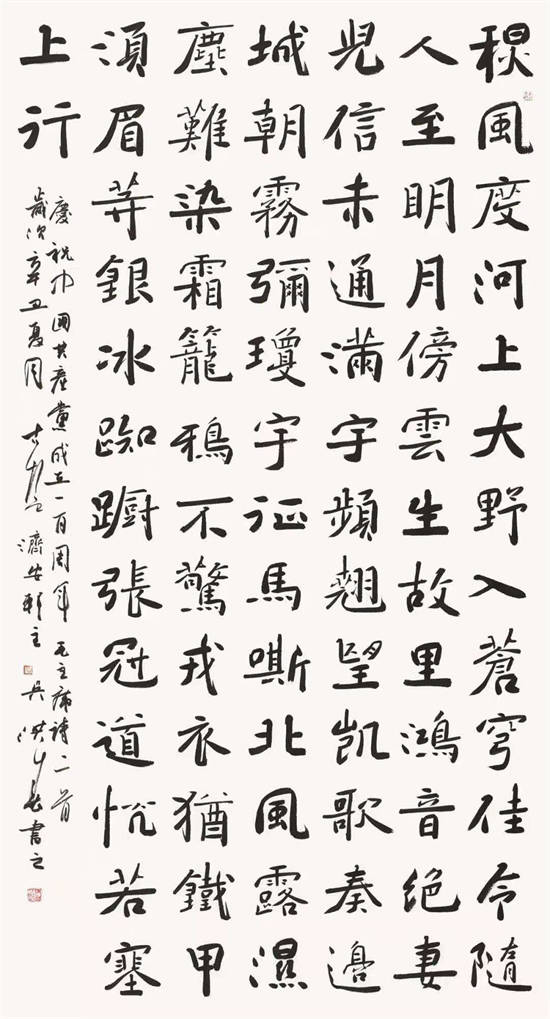 秋風度河上大野入蒼穹佳令隨
人至明月傍雲生故里鴻音絕妻
兒信未通滿宇頻翹望凱歌奏邊
城朝霧彌瓊宇征馬嘶北風露濕
塵難染霜籠鴉不驚戎衣猶鐵甲
須眉等銀冰踟躕張冠道恍若塞
上行
慶祝中國共產黨成立一百周年毛主席詩二首
歲次辛丑夏月濟安軒主吳洪春書之